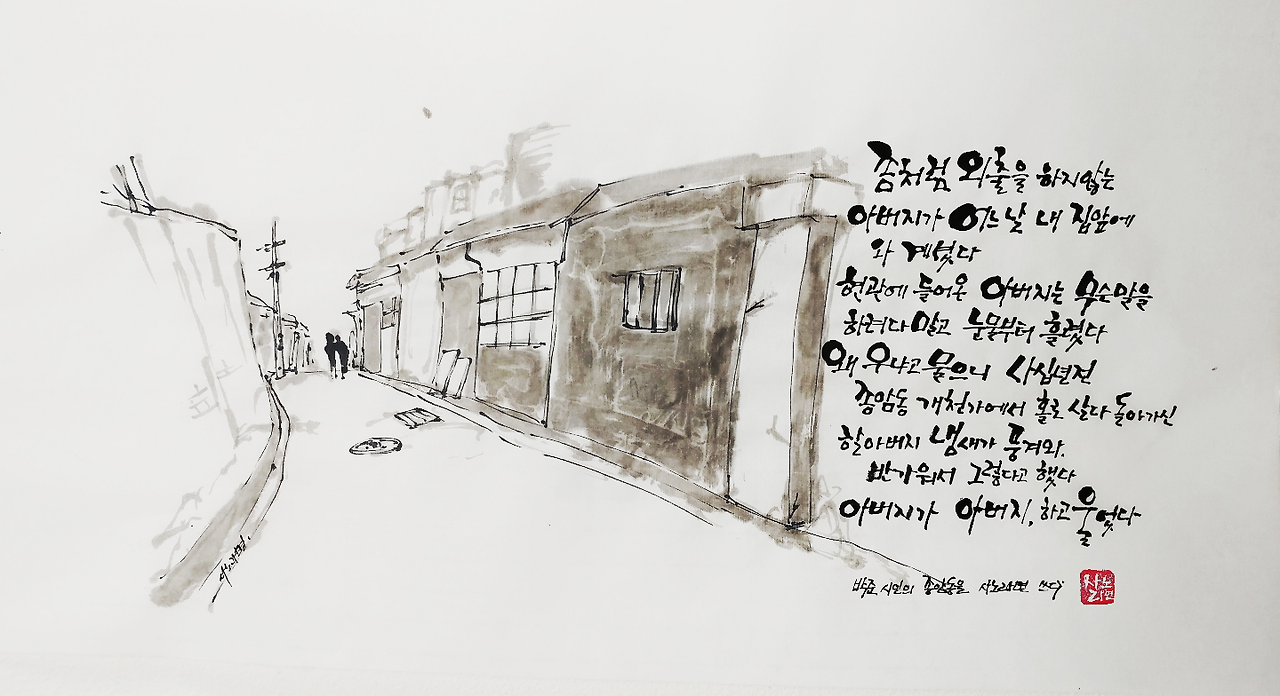 좀처럼 외출을 하지않는
아버지가 어느날 내 집앞에
와 계셨다
현관에 들어온 아버지는 무슨말을
하려다 말고 눈물부터 흘렸다
왜 우냐고 물으니 사십년전
종암동 개천가에서 홀로 살다 돌아가신
할아버지 냄새가 풍겨와.
반가워서 그렇다고 했다
아버지가 아버지, 하고 울었다
박준 시인의 종암동을 사노라면 쓰다
사노라면
사노라면.